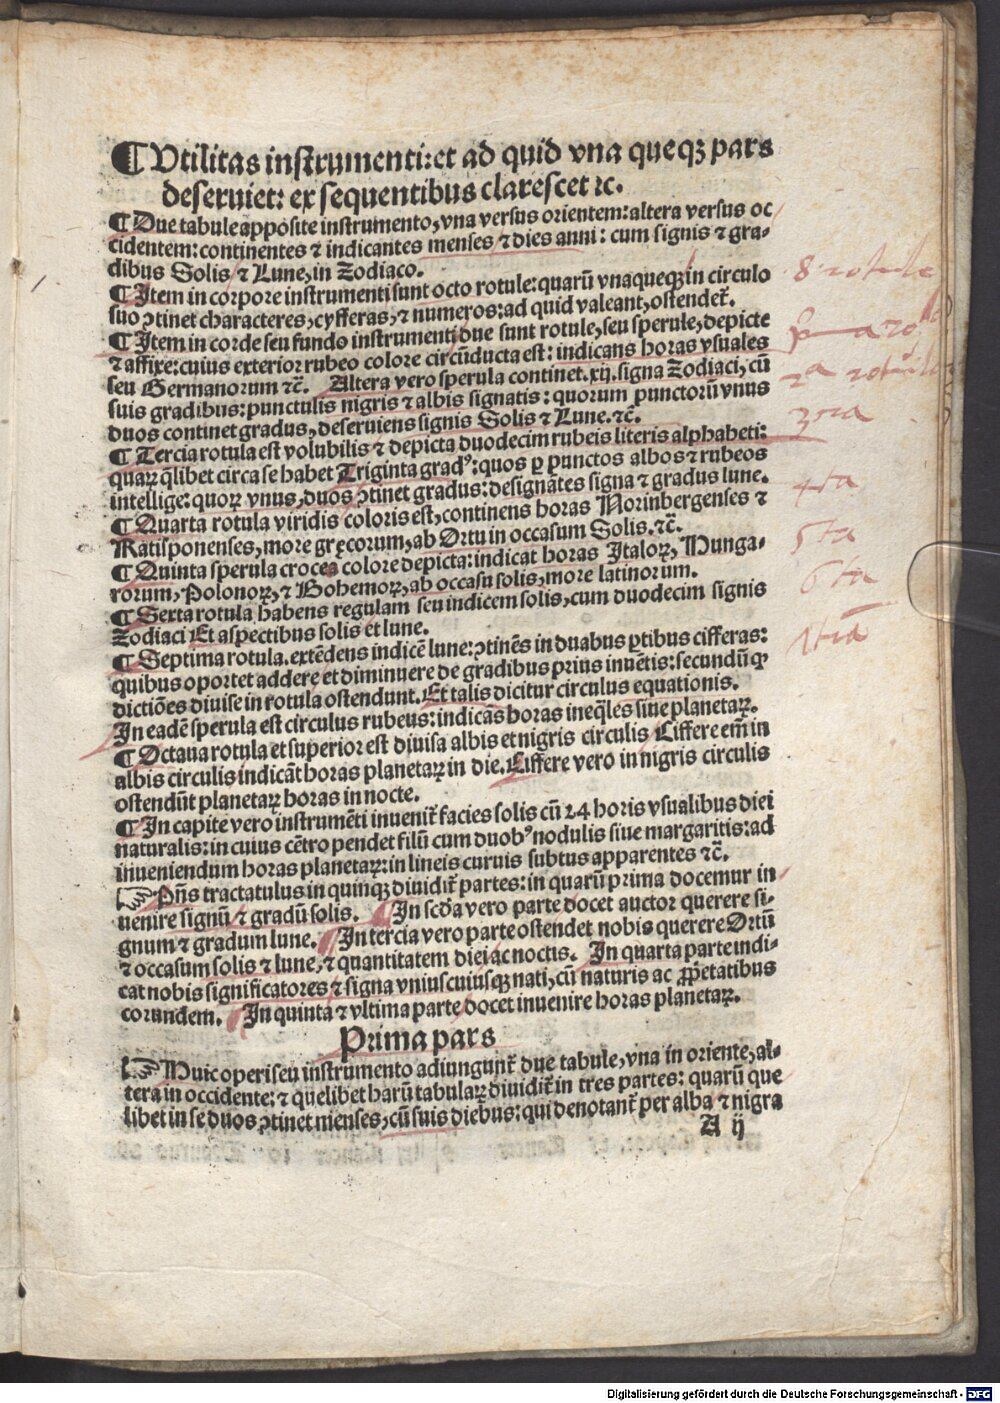 ¶ Vtilitas instrumenti: et ad quid vna queqꝫ pars
deseruiet: ex sequentibus clarescet ⁊c.
¶ Due tabule apposite instrumento, vna versus orientem: altera versus oc
cidentem: continentes ⁊ indicantes menses ⁊ dies anni: cum signis ⁊ gra-
dibus Solis ⁊ Lune, in Zodiaco.
¶ Item in corpore instrumenti sunt octo rotule: quarū vnaqueqꝫ in circulo
suo ꝯtinet characteres, cyfferas, ⁊ numeros: ad quid valeant, ostendet̄.
¶ Item in corde seu fundo instrumenti due sunt rotule, seu sperule, depicte
⁊ affixe: cuius exterior rubeo colore circūducta est: indicans horas vsuales
seu Germanorum ⁊c̄. Altera vero sperula continet .xij. signa Zodiaci, cū
suis gradibus: punctulis nigris ⁊ albis signatis: quorum punctorū vnus
duos continet gradus, deseruiens signis Solis ⁊ Lune. ⁊c̄.
¶ Tercia rotula est volubilis ⁊ depicta duodecim rubeis literis alphabeti:
quaꝝ q̄libet circa se habet Triginta gradꝰ: quos ꝑ pūnctos albos ⁊ rubeos
intellige: quoꝝ vnus, duos ꝯtinet gradus: designātes signa ⁊ gradus lune.
¶ Quarta rotula viridis coloris est, continens horas Norinbergenses ⁊
Ratisponenses, more grecorum, ab Ortu in occasum Solis. ⁊c̄.
¶ Quinta sperula crocea colore depicta: indicat horas Italoꝝ, Hunga-
rorum, Polonoꝝ, ⁊ Bohemoꝝ, ab occasu solis, more latinorum.
¶ Sexta rotula habens regulam seu indicem solis, cum duodecim signis
Zodiaci Et aspectibus solis et lune.
¶ Septima rotula. extēdens indicē lune: ꝯtinēs in duabus ꝑtibus cifferas:
quibus oportet addere et diminuere de gradibus prius inuētis: secundū ꝙ
dictiōes diuise in rotula ostendunt. Et talis dicitur circulus equationis.
In eadē sperula est circulus rubeus: indicās horas ineq̄les siue planetaꝝ.
¶ Octaua rotula et superior est diuisa albis et nigris circulis Ciffere em̄ in
albis circulis indicāt horas planetaꝝ in die. Ciffere vero in nigris circulis
ostendūt planetaꝝ horas in nocte.
¶ In capite vero instrumēti inuenit̄ facies solis cū 24 horis vsualibus diei
naturalis: in cuius cētro pendet filū cum duobꝰ nodulis siue margaritis: ad
inueniendum horas planetaꝝ: in lineis curuis subtus apparentes ⁊c̄.
☞ Pn̄s tractatulus in quinqꝫ diuidit̄ partes: in quarū prima docemur in
uenire signū ⁊ gradū solis. In scd̄a vero parte docet auctor querere si-
gnum ⁊ gradum lune. In tercia vero parte ostendet nobis querere Ortū
⁊ occasum solis ⁊ lune, ⁊ quantitatem diei ac noctis. In quarta parte indi-
cat nobis significatores ⁊ signa vniuscuiusqꝫ nati, cū naturis ac ꝓprietatibus
eorundem. In quinta ⁊ vltima parte docet inuenire horas planetaꝝ.
Prima pars
☞ Huic operi seu instrumento adiungunt̄ due tabule, vna in oriente, al-
tera in occidente: ⁊ quelibet harū tabulaꝝ diuidit̄ in tres partes: quarū que
libet in se duos ꝯtinet menses, cū suis diebus: qui denotant̄ per alba ⁊ nigra
A ij
8 rotule
2a rotula
3tia
4ta
5ta
6ta
Digitalisierung gefördert durch die Deutsche Forschungsgemeinschaft - DFG